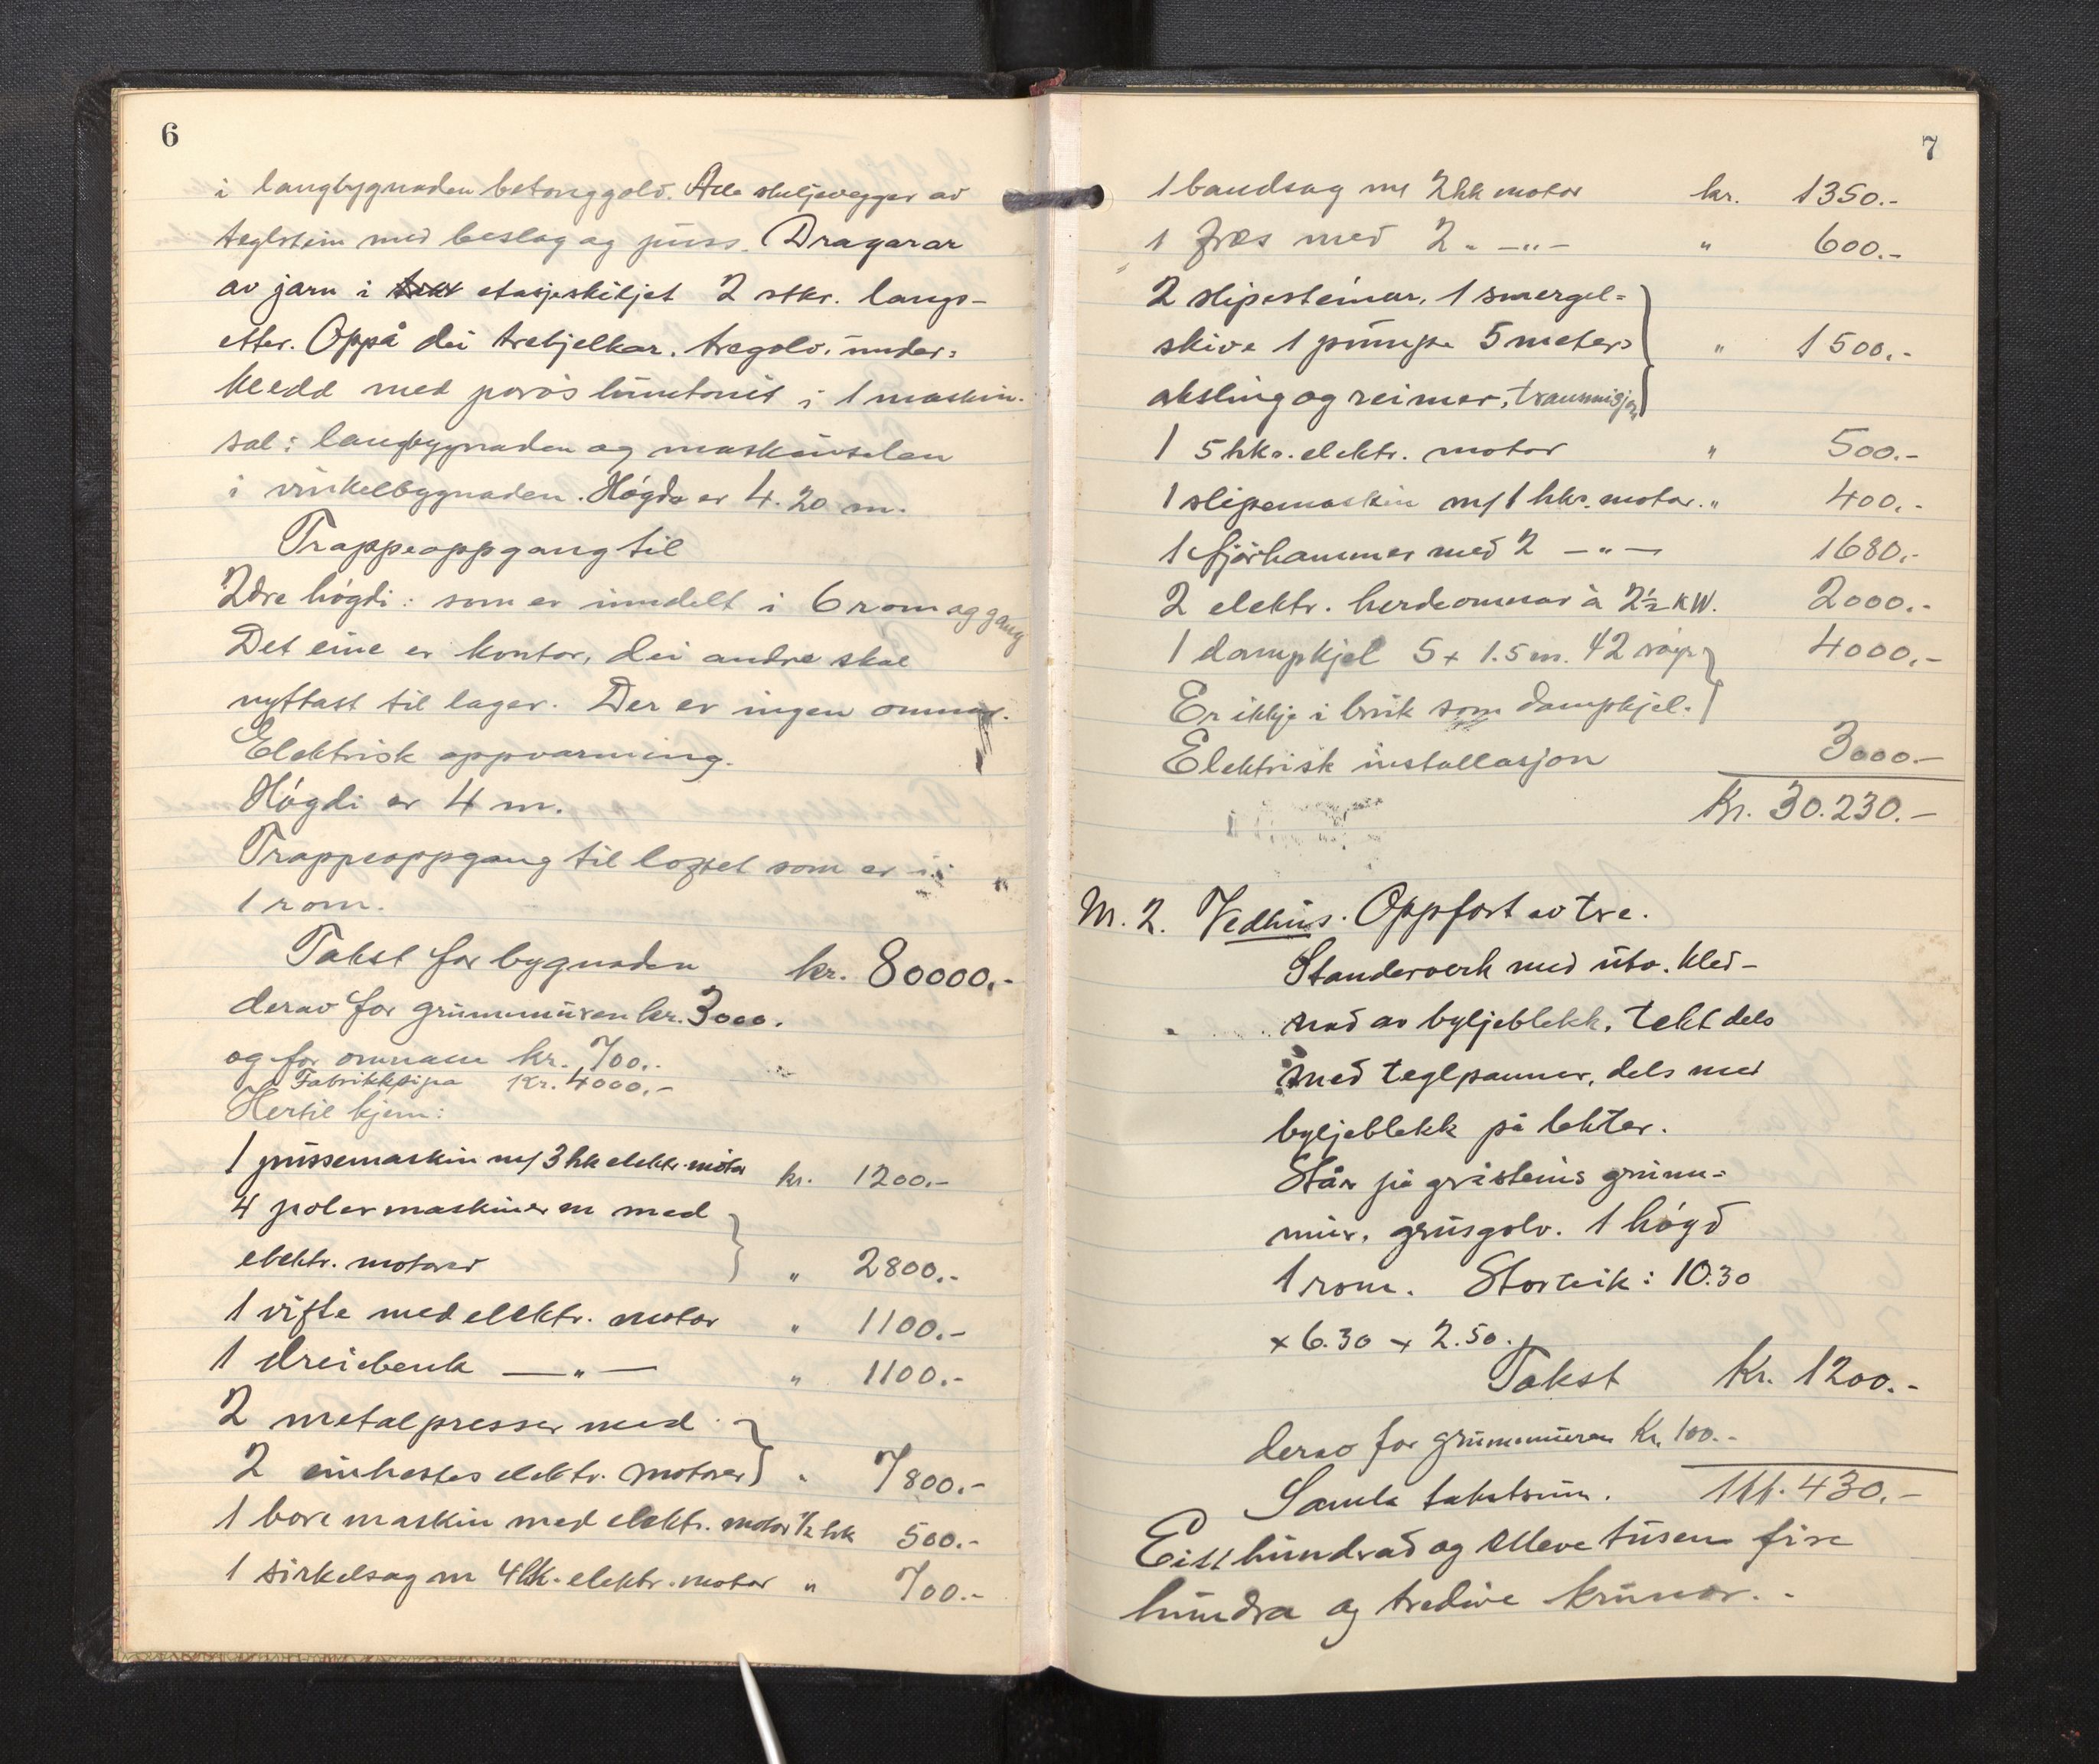 6
i langbygnaden betonggolv. Alle skiljevegger av
teglstein med beslag og puss. Dragarar
av jarn i etasjeskiljet 2 stkr. langs-
etter. Oppå dei trebjelkar, tregolv, under-
kledd med porøs huntonit i 1 maskin-
sal i langbygnaden og maskinsalen
i vinkelbygnaden. Høgda er 4.20 m.
Trappeoppgang til
2dre høgdi: som er inndelt i 6 rom og gang
Det eine er kontor, dei andre skal
nyttast til lager. Der er ingen omnar.
Elektrisk oppvarming.
Høgdi er 4 m.
Trappeoppgang til loftet som er i
1 rom.
Takst for bygnaden kr. 80000.-
derav for grunnmuren kr. 3000.
og for omnan kr. 700..
Fabrikkpipa Kr. 4000.-
Hertil kjem:
1 pussemaskin m/ 3 hk elektr. motor kr. 1200.-
4 polermaskiner m med
elektr. motorar " 2800.-
1 vifte med elektr. motor " 1100.-
1 dreiebenk — " — " 1100.-
2 metalpresser med
2 einhestes elektr. motorer " 7800.-
1 boremaskin med elektr. motor 1/2 hk 500.-
1 sirkelsag m 4 hk. elektr. motor " 700.-
7
1 bandsag m/ 2 hk motor kr. 1350.-
1 fræs med 2 " — " — " 600.-
2 slipesteinar, 1 smergel-
skive 1 pumpe 5 meter " 1500.-
aksling og reimer, transmisjon
1 5 hkr. elektr. motor " 500.-
1 slipemaskin m/ 1 hkr. motor. " 400.-
1 fjørhammer med 2 — " — 1680.-
2 elektr. herdeomnar à 2½ KW. 2000.-
1 dampkjel 5 x 1.5 m. 42 røyr 4000.-
Er ikkje i bruk som dampkjel.
Elektrisk installasjon 3000.-
Kr. 30.230.-
M. 2. Vedhus. Oppført av tre.
Standerverk med utv. kled-
nad av bylgjeblekk, tekt dels
med teglpanner, dels med
bylgjeblekk på lekter.
Står på gråsteins grunn-
mur, grusgolv. 1 høgd
1 rom. Storleik: 10.30
x 6.30 x 2.50.
Takst Kr. 1200.-
derav for grunnmuren Kr. 100.-
Samla takstsum. 111.430.-
Eitt hundrad og elleve tusen fire
hundra og tredive krunor. -